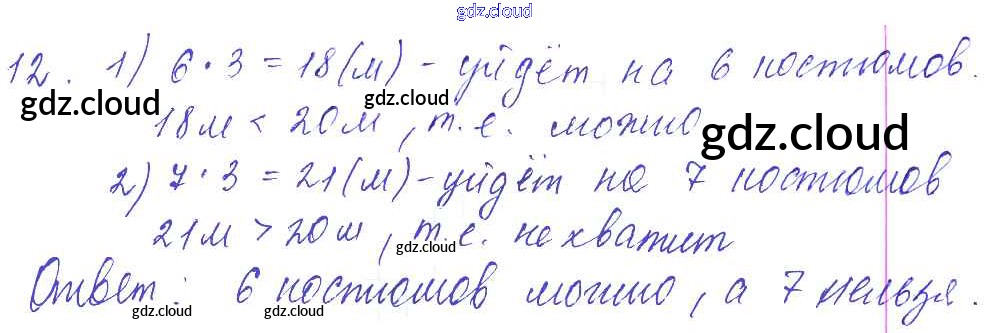 gdz.cloud
12. 1) 6 · 3 = 18 (м) - уйдёт на 6 костюмов.
gdz.cloud gdz.cloud
18 м < 20 м, т.е. можно
gdz.cloud
2) 7 · 3 = 21 (м) - уйдёт на 7 костюмов
21 м > 20 м, т.е. не хватит
gdz.cloud
Ответ: 6 костюмов можно, а 7 нельзя.
gdz.cloud gdz.cloud